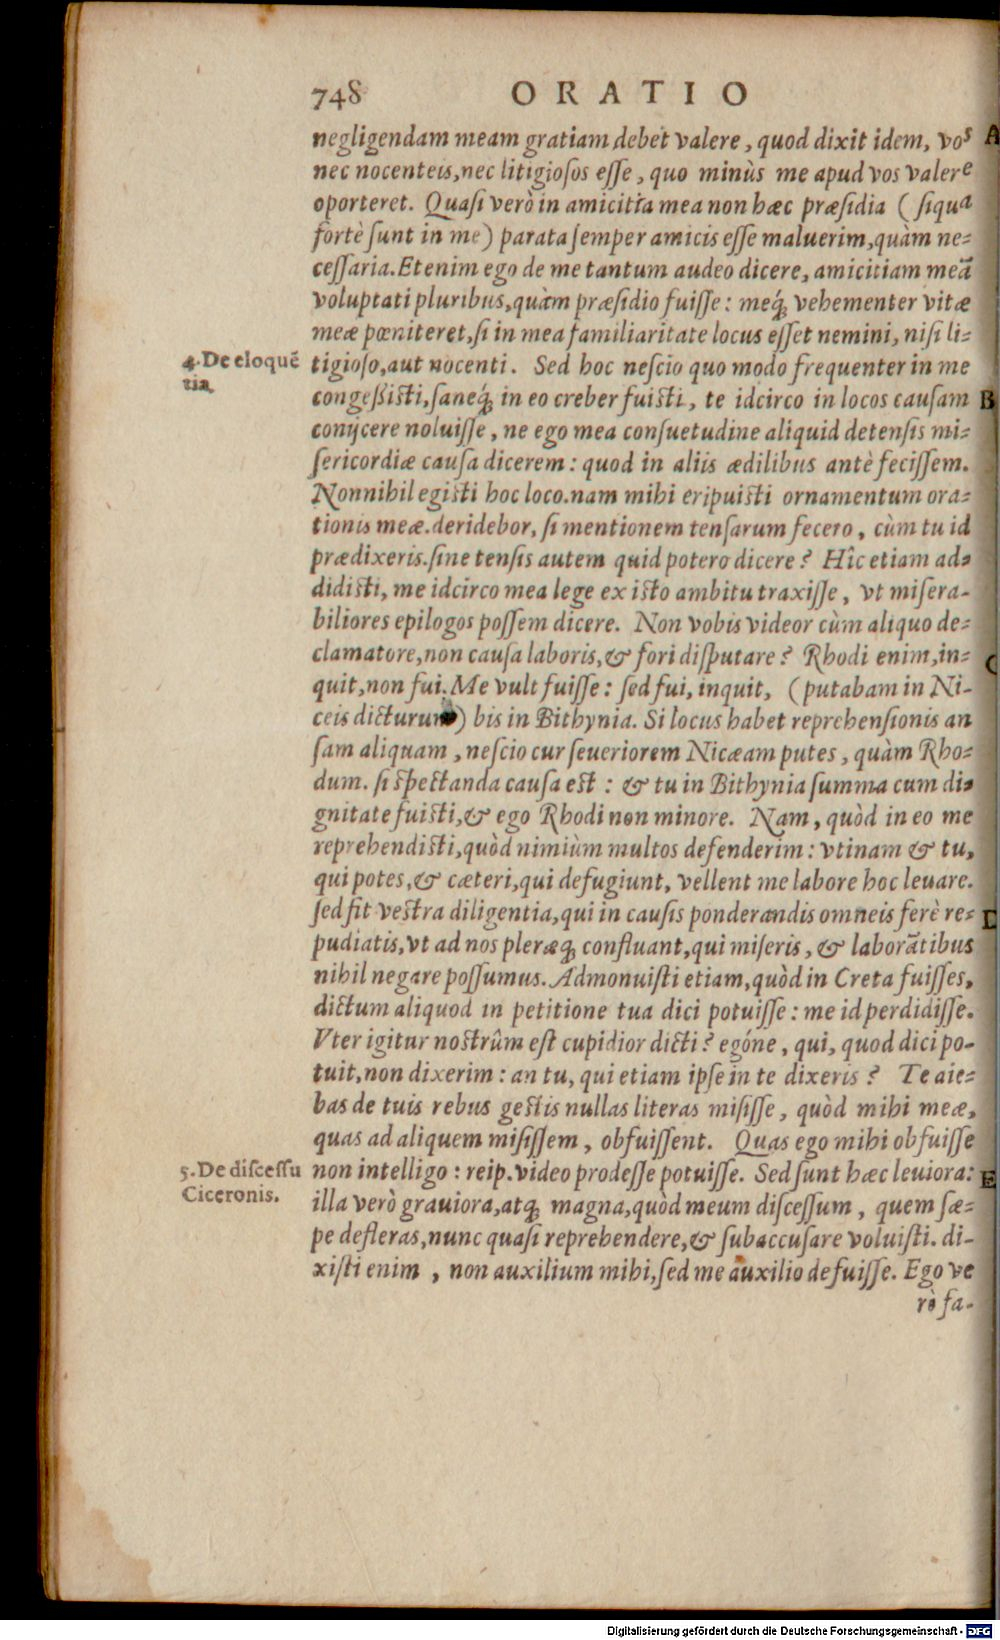 748 ORATIO
negligendam meam gratiam debet valere, quod dixit idem, vos A
nec nocenteis, nec litigiosos esse, quo minùs me apud vos valere
oporteret. Quasi verò in amicitia mea non hæc præsidia (siqua
fortè sunt in me) parata semper amicis esse maluerim, quàm ne=
cessaria. Etenim ego de me tantum audeo dicere, amicitiam meã
voluptati pluribus, quàm præsidio fuisse: meq́; vehementer vitæ
meæ pœniteret, si in mea familiaritate locus esset nemini, nisi li=
4. De eloquẽ tigioso, aut nocenti. Sed hoc nescio quo modo frequenter in me
tia. congeßisti, saneq́; in eo creber fuisti, te idcirco in locos causam B
conijcere noluisse, ne ego mea consuetudine aliquid de tensis mi=
sericordiæ causa dicerem: quod in aliis ædilibus antè fecissem.
Nonnihil egisti hoc loco. nam mihi eripuisti ornamentum ora=
tionis meæ. deridebor, si mentionem tensarum fecero, cùm tu id
prædixeris. sine tensis autem quid potero dicere? Hîc etiam ad=
didisti, me idcirco mea lege ex isto ambitu traxisse, vt misera-
biliores epilogos possem dicere. Non vobis videor cùm aliquo de=
clamatore, non causa laboris, & fori disputare? Rhodi enim, in= C
quit, non fui. Me vult fuisse: sed fui, inquit, (putabam in Ni-
ceis dicturum) bis in Bithynia. Si locus habet reprehensionis an
sam aliquam, nescio cur seueriorem Nicæam putes, quàm Rho=
dum. si spectanda causa est: & tu in Bithynia summa cum di=
gnitate fuisti, & ego Rhodi non minore. Nam, quòd in eo me
reprehendisti, quòd nimiùm multos defenderim: vtinam & tu,
qui potes, & cæteri, qui defugiunt, vellent me labore hoc leuare.
sed fit vestra diligentia, qui in causis ponderandis omneis ferè re= D
pudiatis, vt ad nos pleræq; confluant, qui miseris, & laborãtibus
nihil negare possumus. Admonuisti etiam, quòd in Creta fuisses,
dictum aliquod in petitione tua dici potuisse: me id perdidisse.
Vter igitur nostrûm est cupidior dicti? egóne, qui, quod dici po-
tuit, non dixerim: an tu, qui etiam ipse in te dixeris? Te aie=
bas de tuis rebus gestis nullas literas misisse, quòd mihi meæ,
quas ad aliquem misissem, obfuissent. Quas ego mihi obfuisse
5. De discessu non intelligo: reip. video prodesse potuisse. Sed sunt hæc leuiora: E
Ciceronis. illa verò grauiora, atq; magna, quòd meum discessum, quem sæ=
pe defleras, nunc quasi reprehendere, & subaccusare voluisti. di-
xisti enim, non auxilium mihi, sed me auxilio defuisse. Ego ve
rò fa-
Digitalisierung gefördert durch die Deutsche Forschungsgemeinschaft - DFG